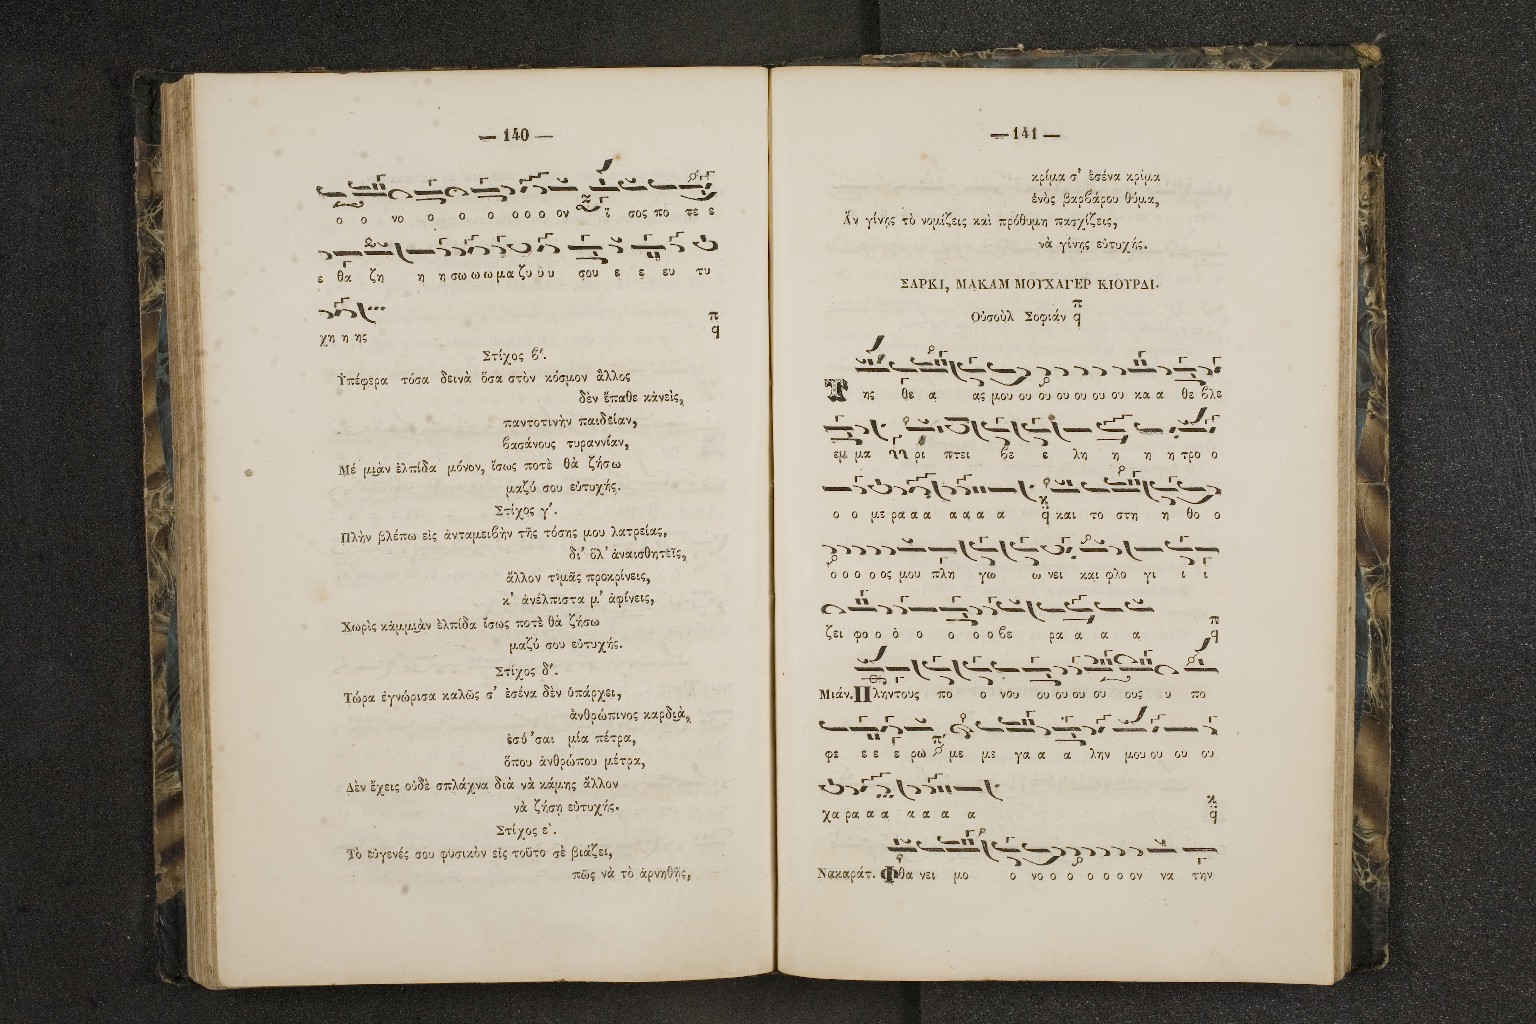 — 140 —
ο ο νο ο ο ο ο ο ο ον ἴ σος πο τε ε
ε θα ζη η η σω ω ω μα ζυ υ υ σου ε ε ευ τυ
χη η ης
π
q
Στίχος β΄.
Ὑπέφερα τόσα δεινὰ ὅσα στὸν κόσμον ἄλλος
δὲν ἔπαθε κἀνείς,
παντοτινὴν παιδείαν,
βασάνους τυραννίαν,
Μέ μιὰν ἐλπίδα μόνον, ἴσως ποτὲ θὰ ζήσω
μαζύ σου εὐτυχής.
Στίχος γ΄.
Πλὴν βλέπω εἰς ἀνταμειβὴν τῆς τόσης μου λατρείας,
δι’ ὅλ’ ἀναισθητεῖς,
ἄλλον τιμᾶς προκρίνεις,
κ’ ἀνέλπιστα μ’ ἀφίνεις,
Χωρὶς κάμμιὰν ἐλπίδα ἴσως ποτὲ θὰ ζήσω
μαζύ σου εὐτυχής.
Στίχος δ΄.
Τώρα ἐγνώρισα καλῶς σ’ ἐσένα δὲν ὑπάρχει,
ἀνθρώπινος καρδιὰ,
ἐσύ ’σαι μία πέτρα,
ὅπου ἀνθρώπου μέτρα,
Δὲν ἔχεις οὐδὲ σπλάχνα διὰ νὰ κάμης ἄλλον
νὰ ζήσῃ εὐτυχής.
Στίχος ε΄.
Τὸ εὐγενές σου φυσικὸν εἰς τοῦτο σὲ βιάζει,
πῶς νὰ τὸ ἀρνηθῇς,
— 141 —
κρίμα σ’ ἐσένα κρίμα
ἑνὸς βαρβάρου θύμα,
Ἂν γίνῃς τὸ νομίζεις καὶ πρόθυμη πασχίζεις,
νὰ γίνῃς εὐτυχής.
ΣΑΡΚΙ, ΜΑΚΑΜ ΜΟΥΧΑΓΕΡ ΚΙΟΥΡΔΙ.
Οὐσοὺλ Σοφιάν π q
Της θε α ας μου ου ου ου ου ου ου κα α θε βλε
εμ μα ρι πτει βε ε λη η η η τρο ο
ο ο με ρα α α α α α α κ q και το στη η θο ο
ο ο ο ο ος μου πλη γω ω νει και φλο γι ι ι
ζει φο ο ο ο ο ο ο βε ρα α α α
π
q
Μιάν. Πλην τους πο ο νου ου ου ου ου ους υ πο
φε ε ε ε ρω π με με γα α α λην μου ου ου ου
χα ρα α α α α α α
κ
q
Νακαράτ. Φθα νει μο ο νο ο ο ο ο ο ον να την